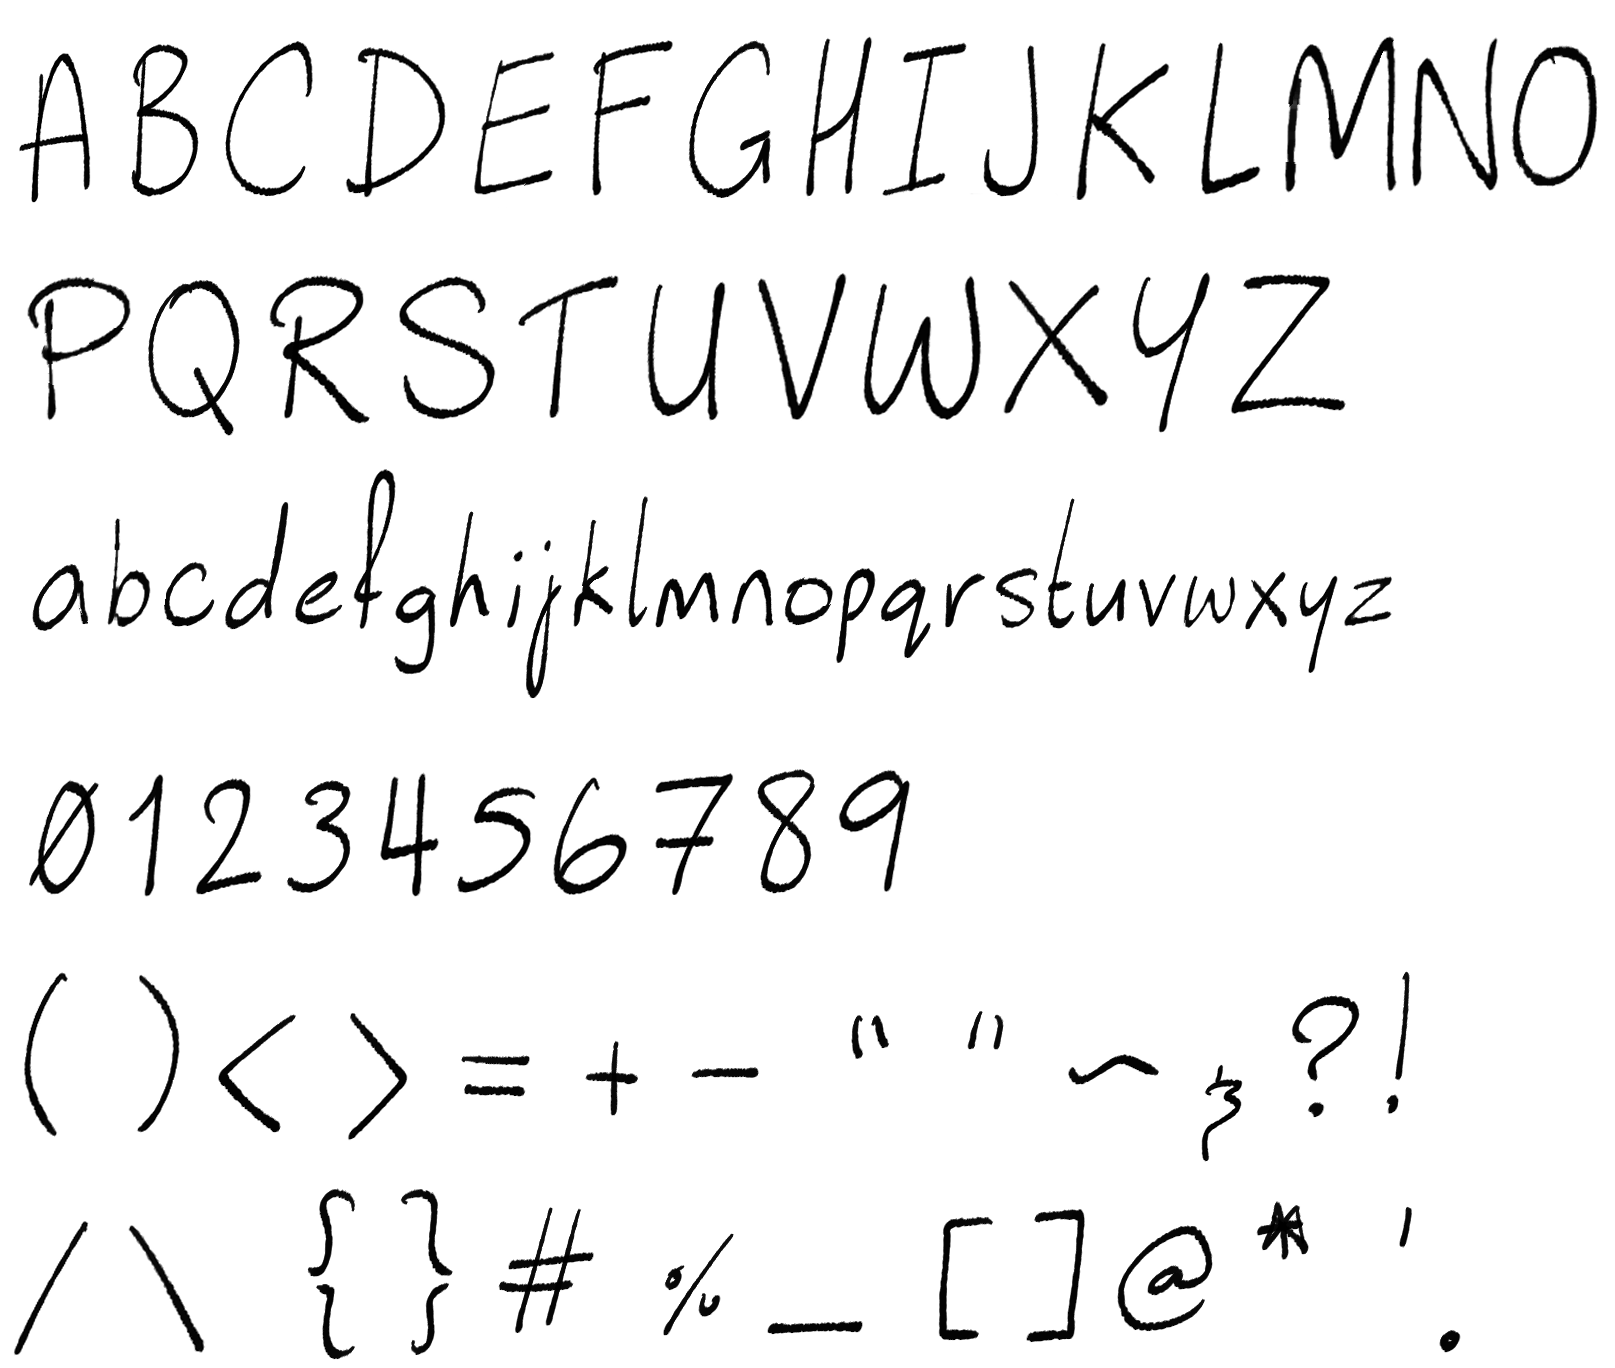 ABCDEFGHIJKLMNO
PQRSTUVWXYZ
abcdefghijklmnopqrstuvwxyz
0123456789
( ) < > = + - “ ” ~ ? !
/ \ { } # % _ [ ] @ * ' .